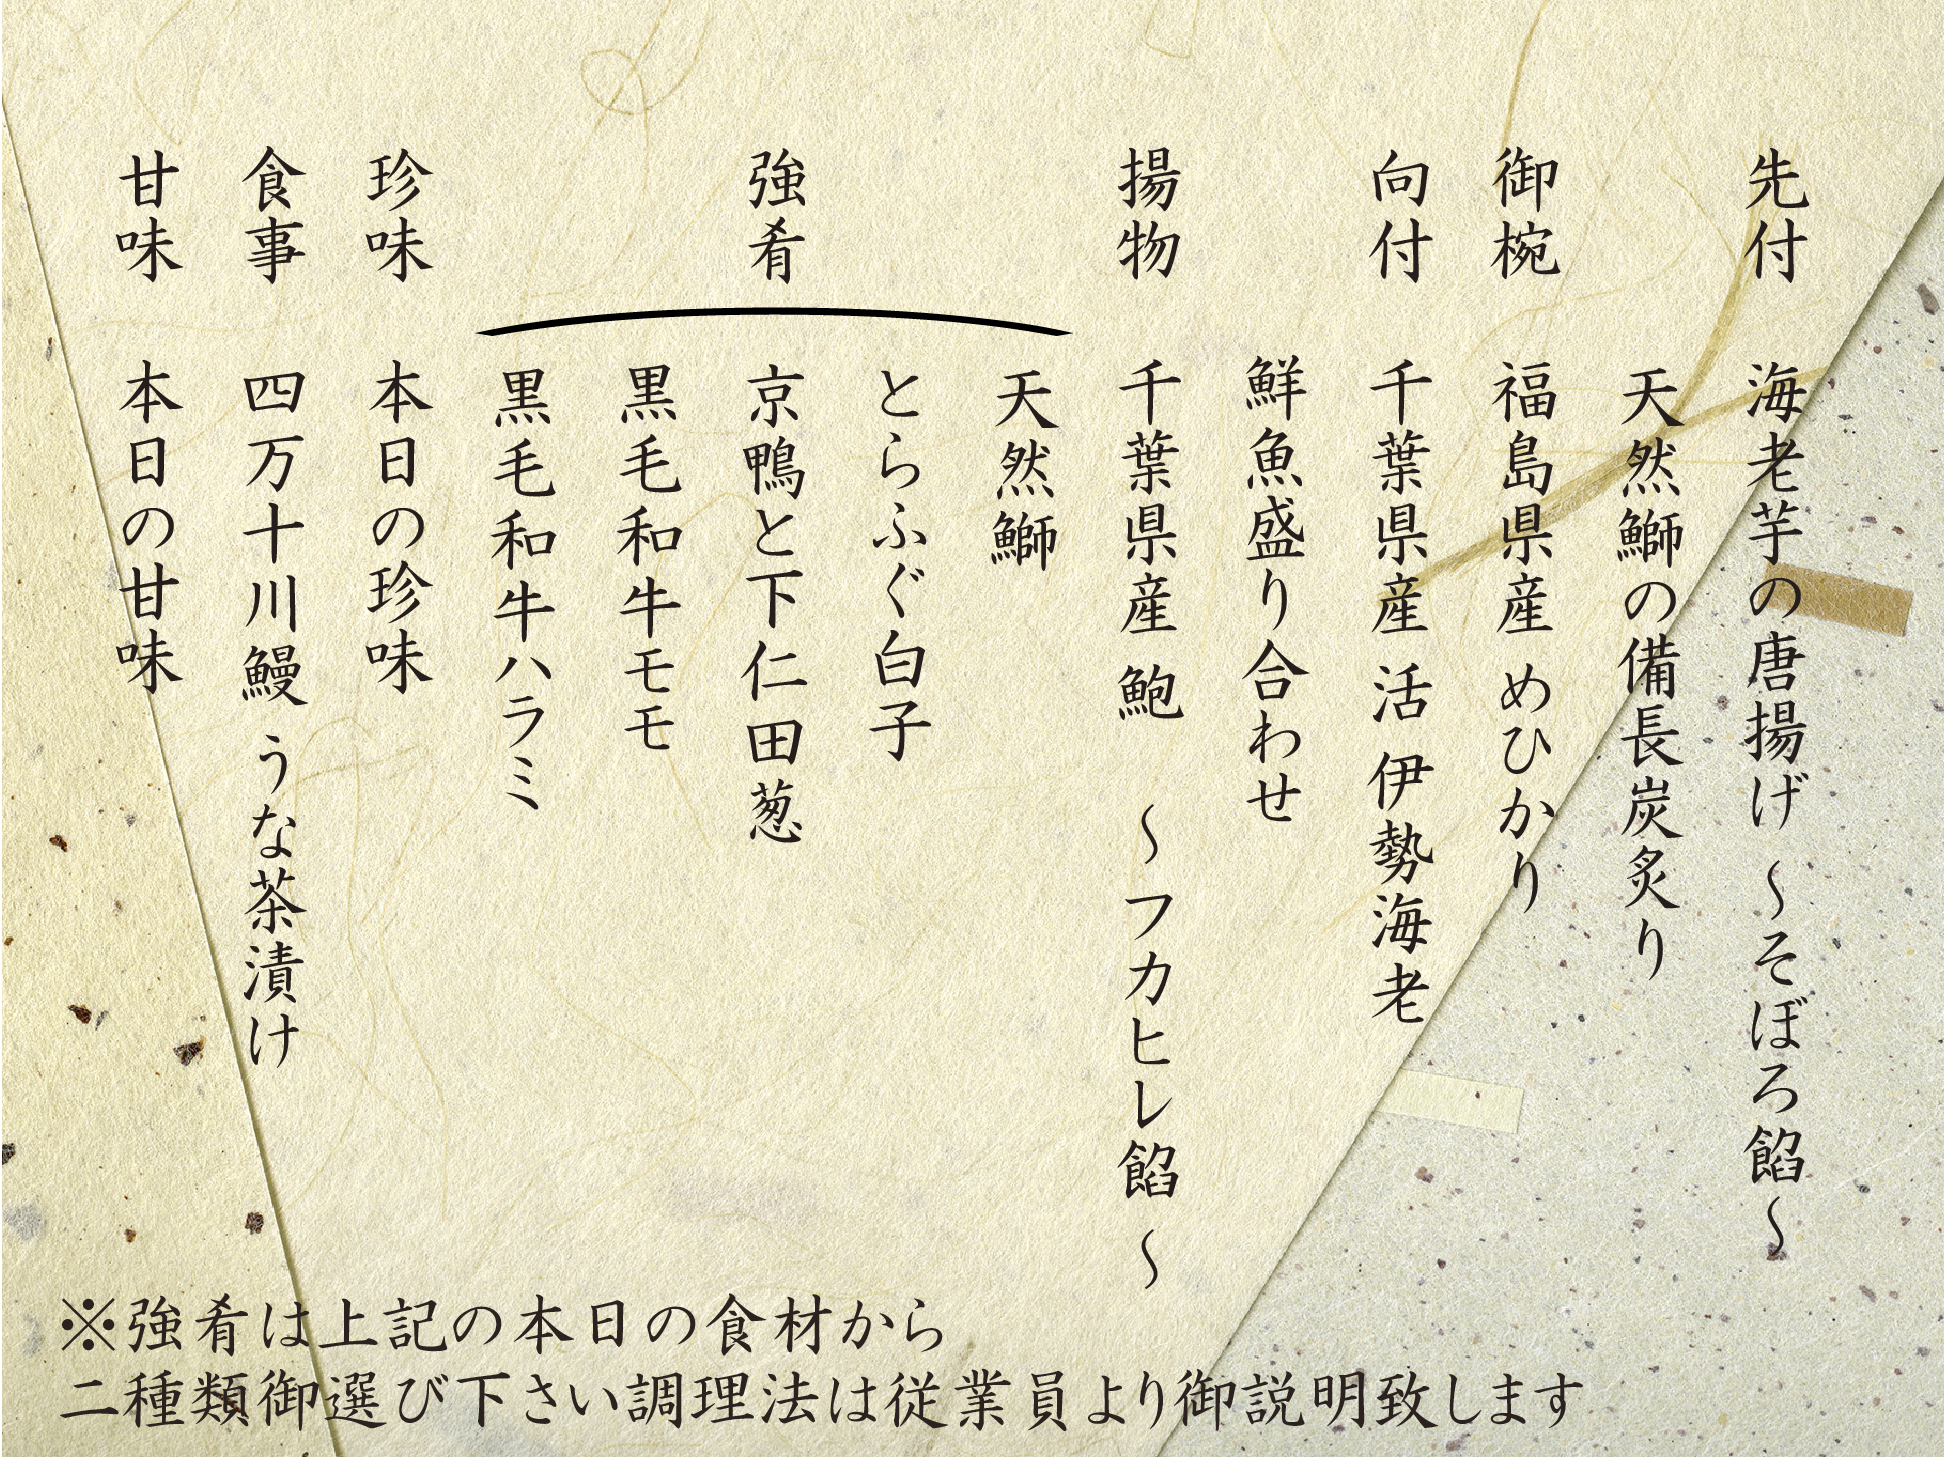 先付 海老芋の唐揚げ 〜そぼろ餡〜
天然鰤の備長炭炙り
御椀 福島県産 めひかり
向付 千葉県産 活 伊勢海老
鮮魚盛り合わせ
揚物 千葉県産 鮑 〜フカヒレ餡〜
強肴
天然鰤
とらふぐ白子
京鴨と下仁田葱
黒毛和牛モモ
黒毛和牛ハラミ
珍味 本日の珍味
食事 四万十川鰻 うな茶漬け
甘味 本日の甘味
※強肴は上記の本日の食材から
二種類御選び下さい調理法は従業員より御説明致します